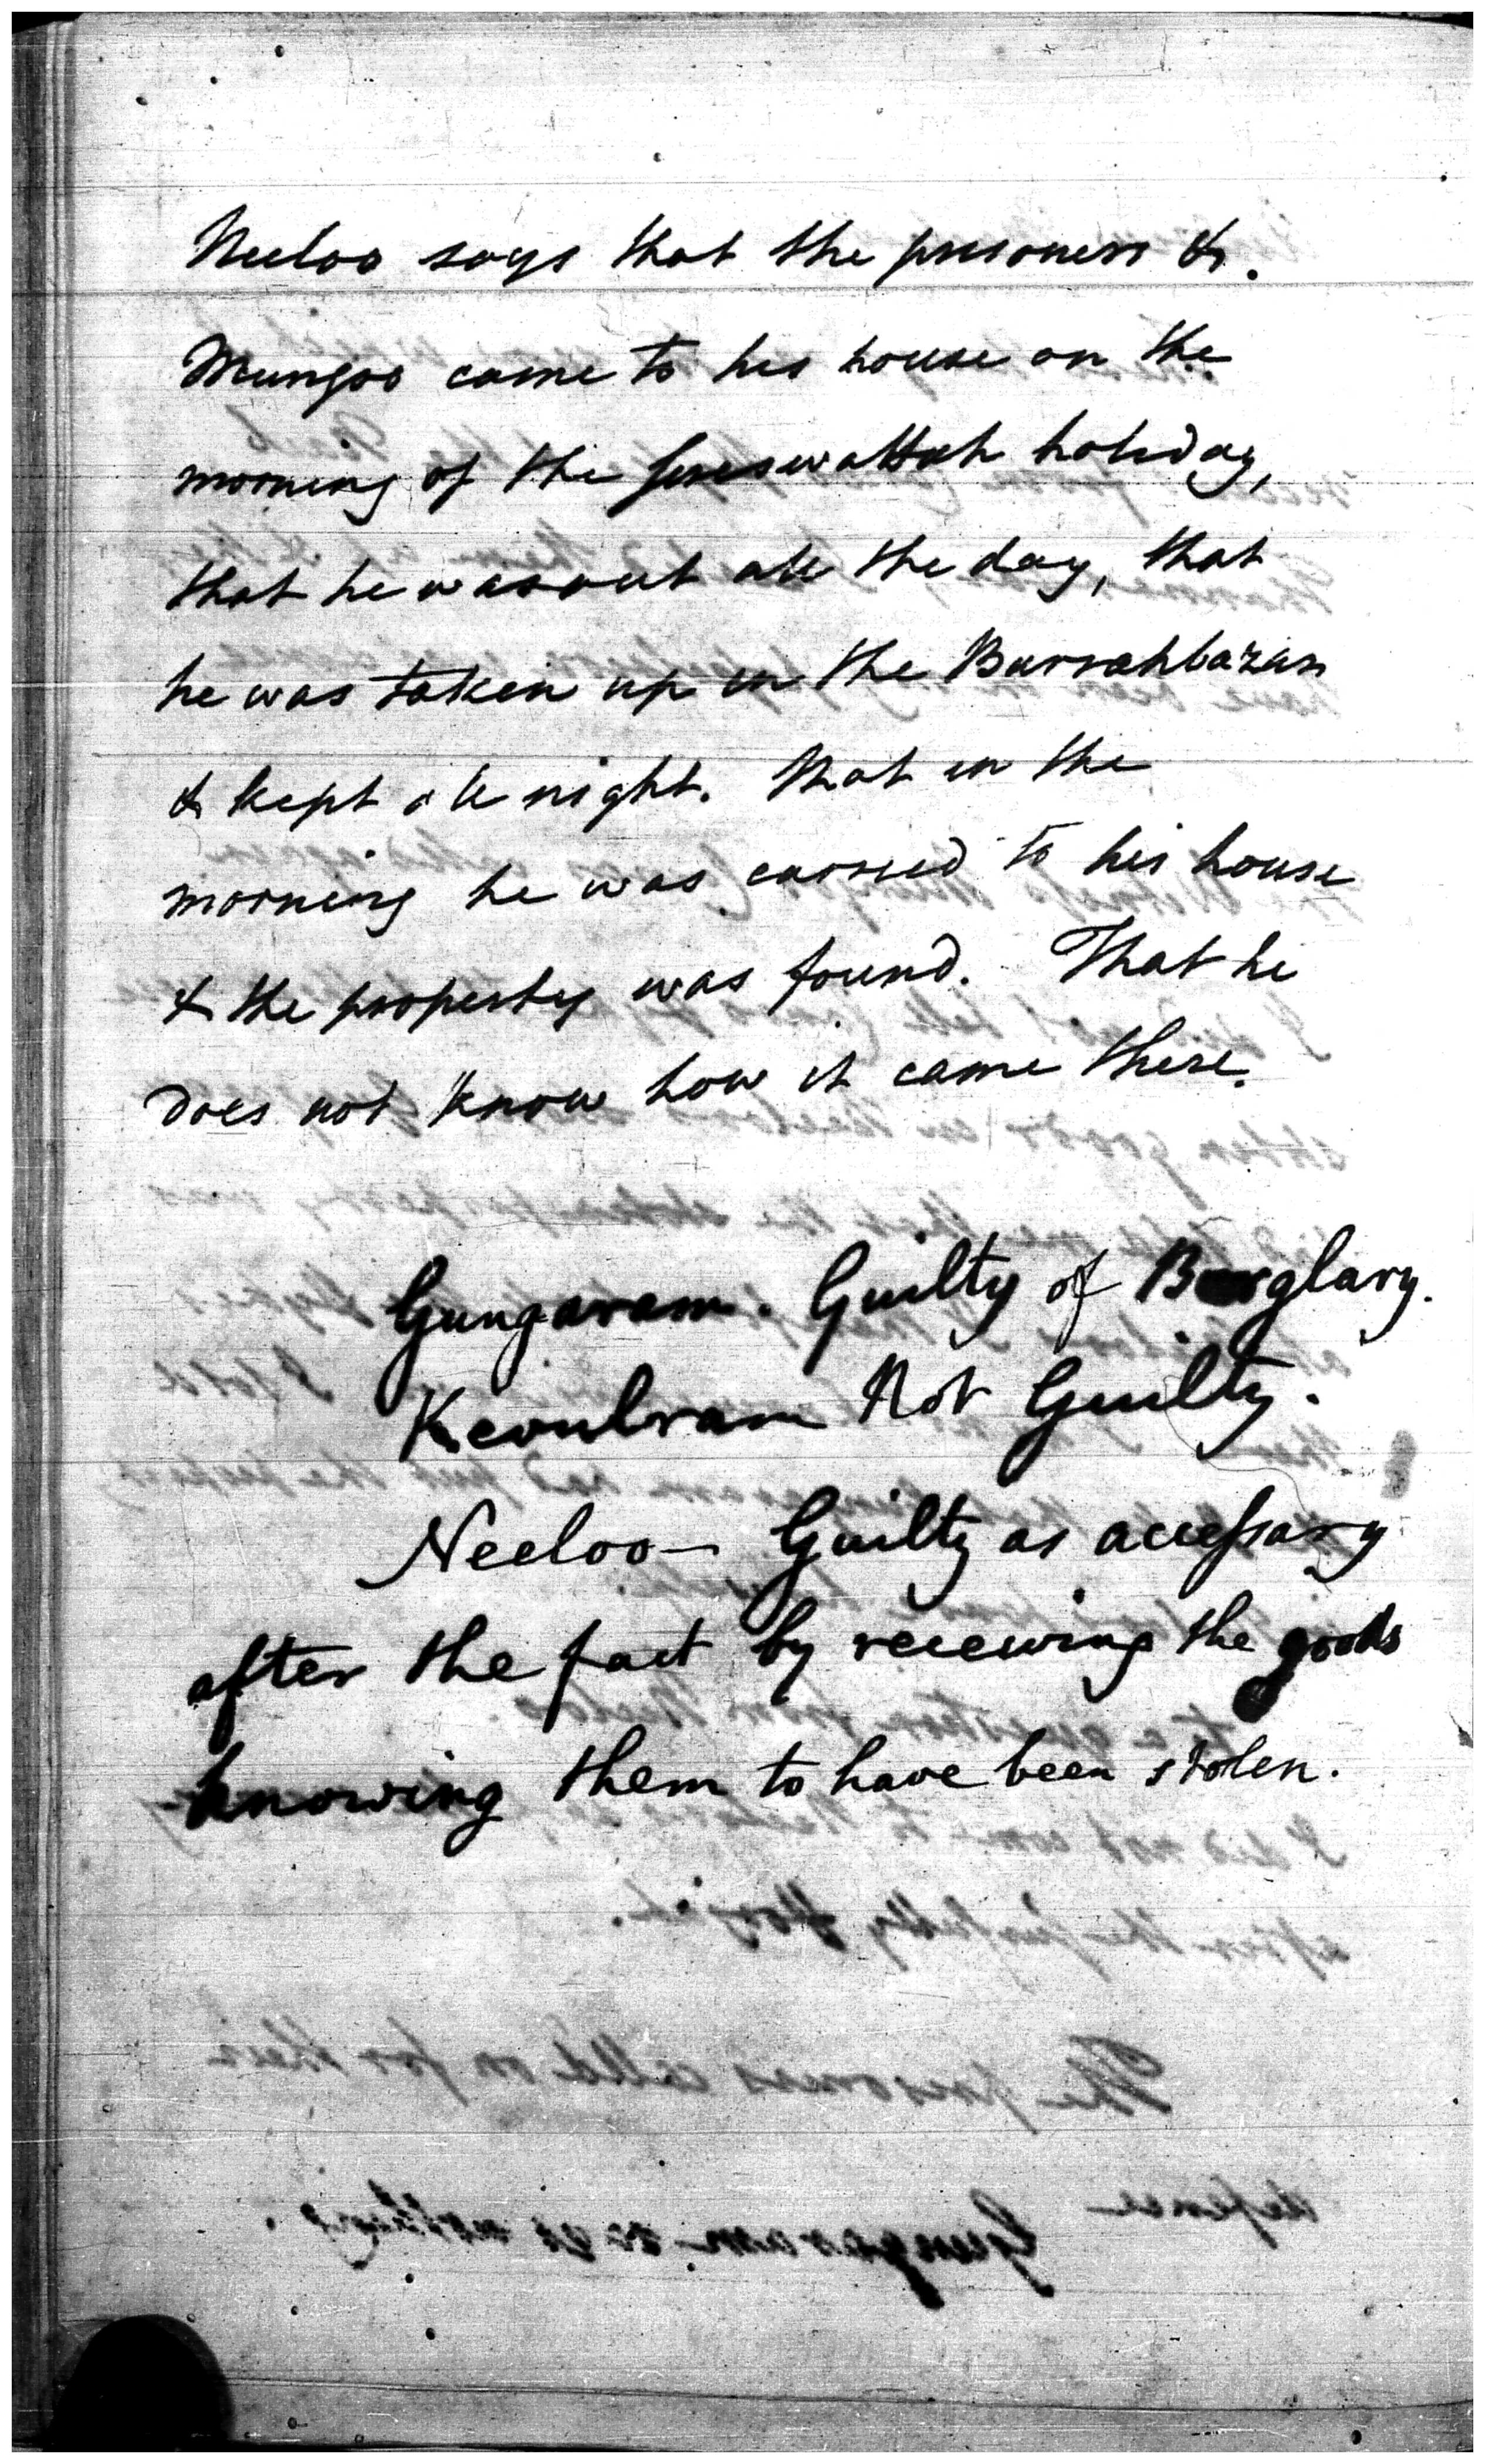 Neeloo says that the prisoners &
Mungoo came to his house on the
morning of the holiday,
that he was out all the day, that
he was taken up in the Burrahbazar
& kept all night. That in the
morning he was carried to his house
& the property was found. That he
does not know how it came there.
Gungaram. Guilty of Burglary.
Kewulram Not Guilty.
Neeloo — Guilty as accessary
after the fact by receiving the goods
knowing them to have been stolen.